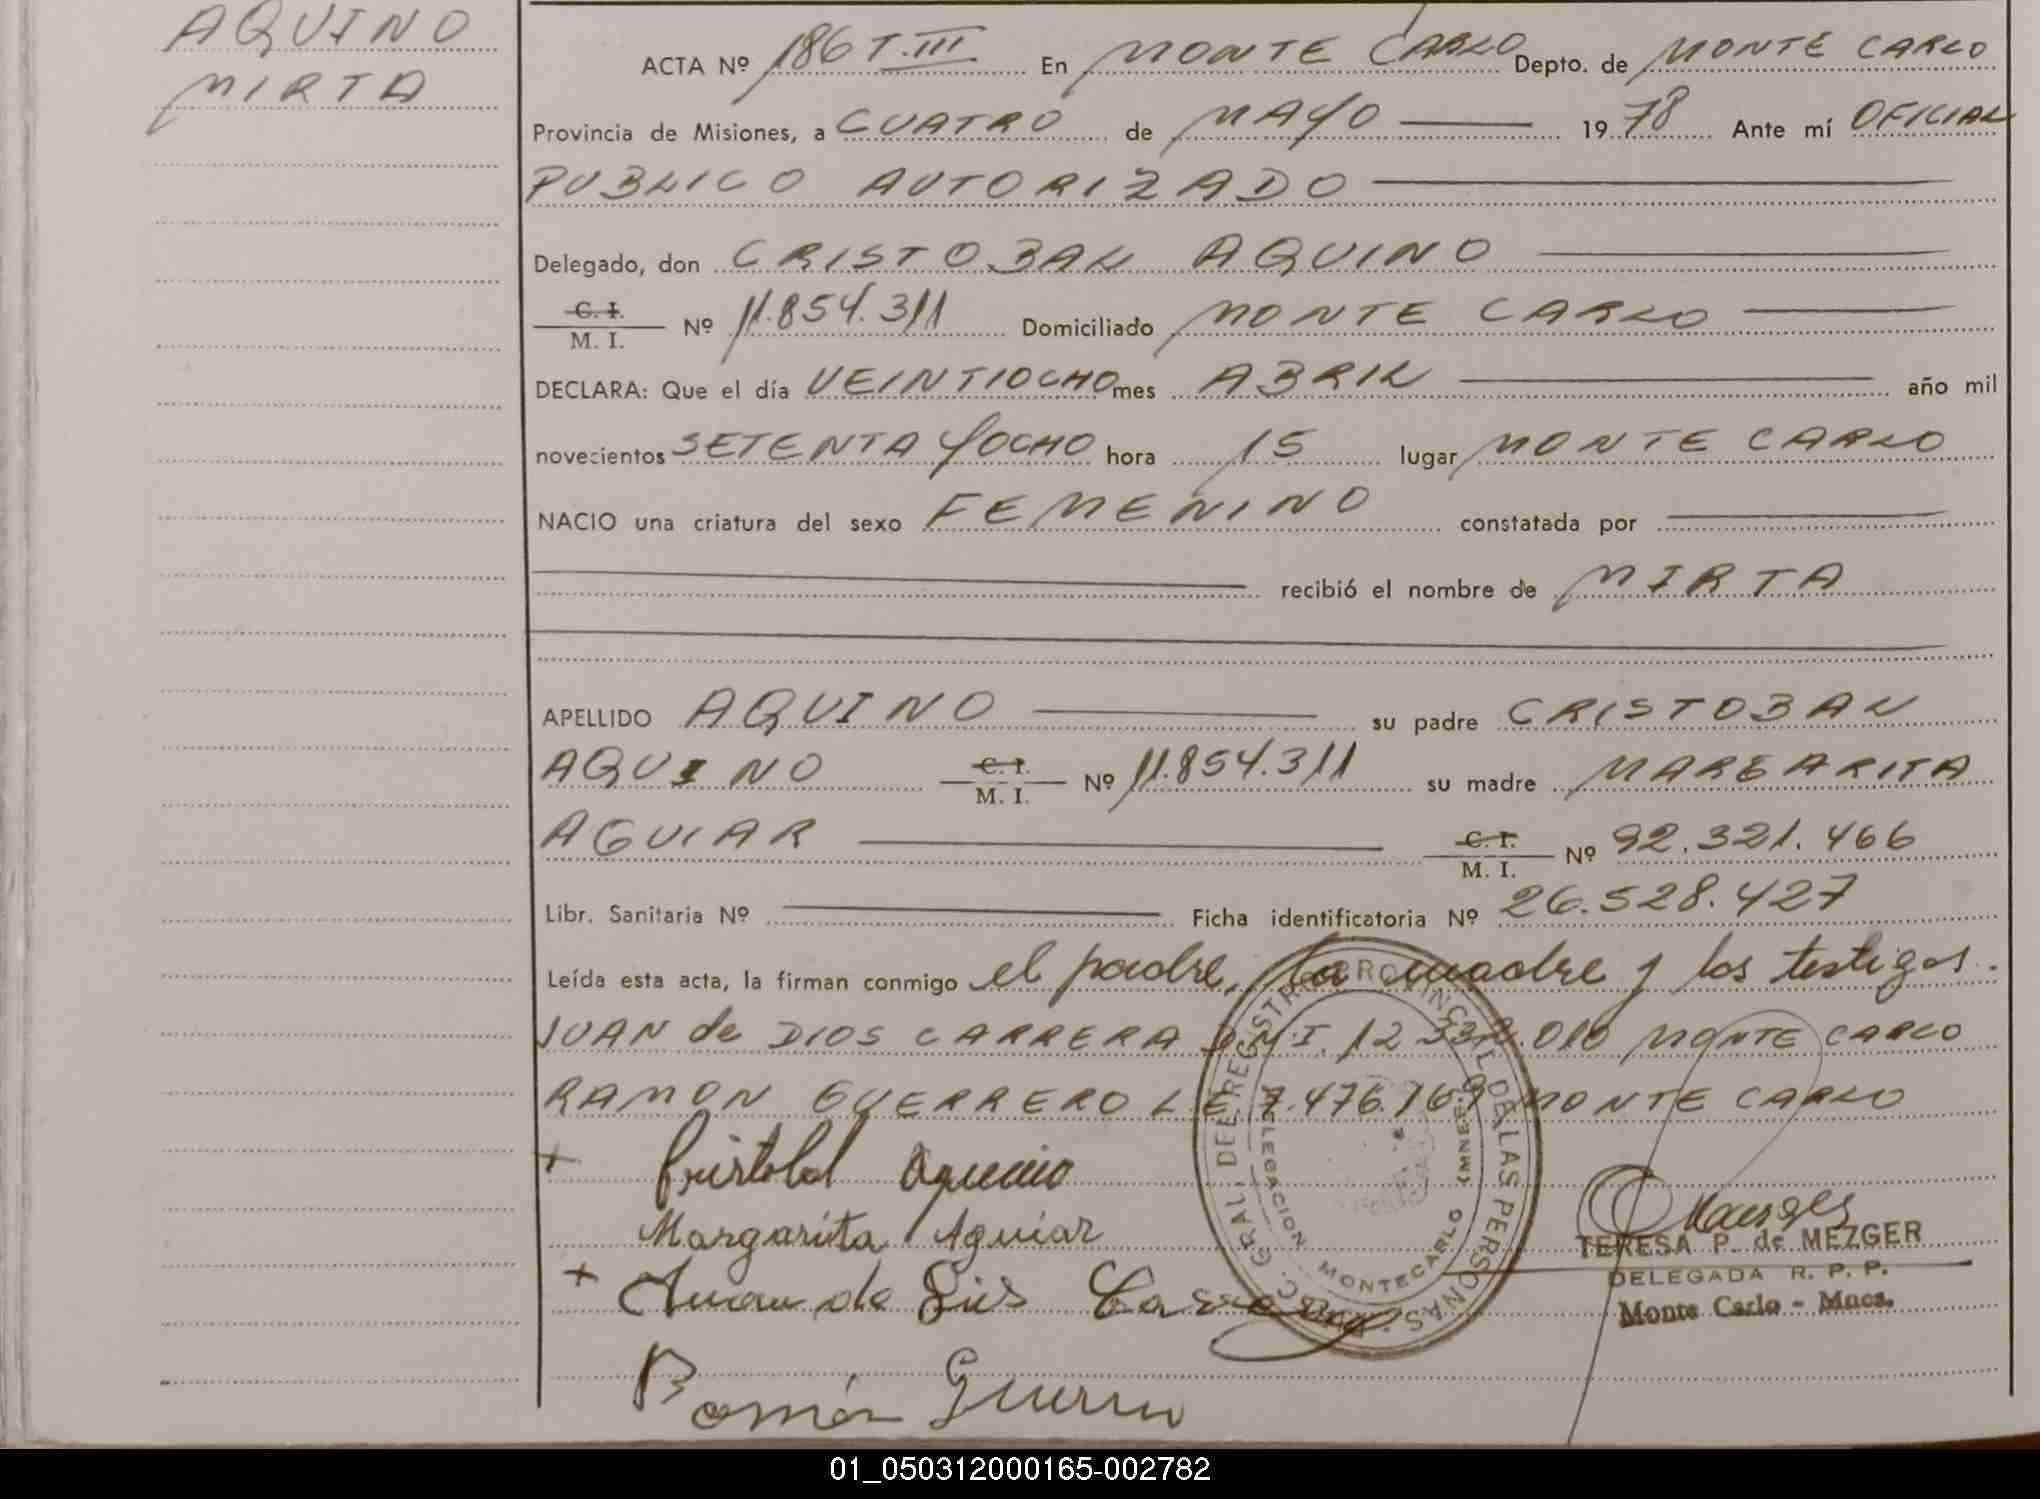 AQUINO
MIRTA
ACTA Nº 186 T. III En MONTE CARLO Depto. de MONTE CARLO
Provincia de Misiones, a CUATRO de MAYO 1978 Ante mí OFICIAL
PUBLICO AUTORIZADO
Delegado, don CRISTOBAL AQUINO
C. I.
M. I. Nº 11.854.311 Domiciliado MONTE CARLO
DECLARA: Que el día VEINTIOCHO mes ABRIL año mil
novecientos SETENTA Y OCHO hora 15 lugar MONTE CARLO
NACIO una criatura del sexo FEMENINO constatada por
recibió el nombre de MIRTA
APELLIDO AQUINO su padre CRISTOBAL
AQUINO C. I. M. I. Nº 11.854.311 su madre MARGARITA
AGUIAR C. I. M. I. Nº 92.321.466
Libr. Sanitaria Nº Ficha identificatoria Nº 26.528.427
Leída esta acta, la firman conmigo el padre, la madre y los testigos.
JUAN de DIOS CARRERA D.N.I. 12.332.010 MONTE CARLO
RAMON GUERRERO L.E. 7.476.169 MONTE CARLO
Cristobal Aquino
Margarita Aguiar
Juan de Dios
Ramón
TERESA P. de MEZGER
DELEGADA R. P. P.
Monte Carlo - Mnes.
DELEGACION MONTECARLO (MNES.)
01_050312000165-002782